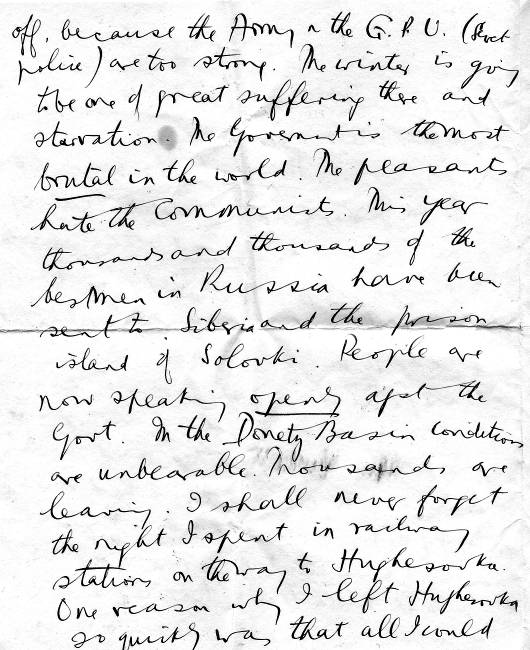 off, because the Army n the G.P.U. (Secret
police) are too strong. The winter is going
to be one of great suffering there and
starvation. The Government is the most
brutal in the world. The peasants
hate the Communists. This year
thousands and thousands of the
best men in Russia have been
sent to Siberia and the prison
island of Solovki. People are
now speaking openly agst the
Govt. In the Donetz Basin conditions
are unbearable. Thousands are
leaving. I shall never forget
the night I spent in railway
stations on the way to Hughesovka.
One reason why I left Hughesovka
so quickly was that all I could